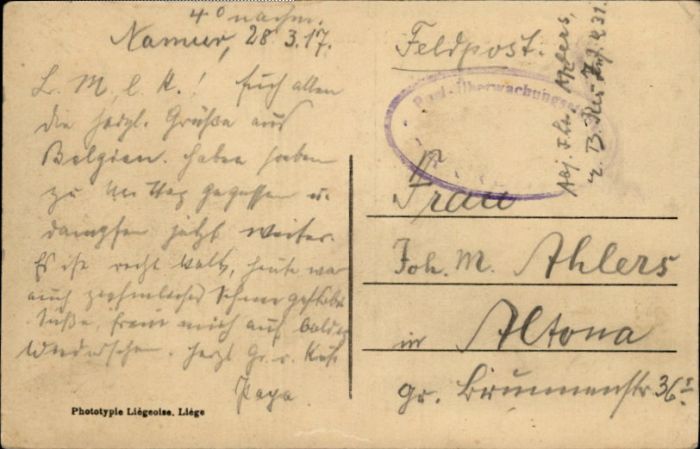 4⁰ nachm.
Namur, 28 3.17.
L. M, l. K.! Euch allen
die herzl. Grüße aus
Belgien. Haben soeben
zu Mittag gegessen u.
dampfen jetzt weiter.
Es ist recht kalt, heute war
auch ziehmliches Schneegestöber.
Süße, freue mich auf baldig
Wiedersehen. Herzl Gr. u. Kuß
Papa.
Phototypie Liégeoise, Liége
Feldpost.
Post-Überwachungs
Adj. Ahlers,
Frau
Joh. M. Ahlers
in Altona
gr. Brunnenstr 36ᴵ